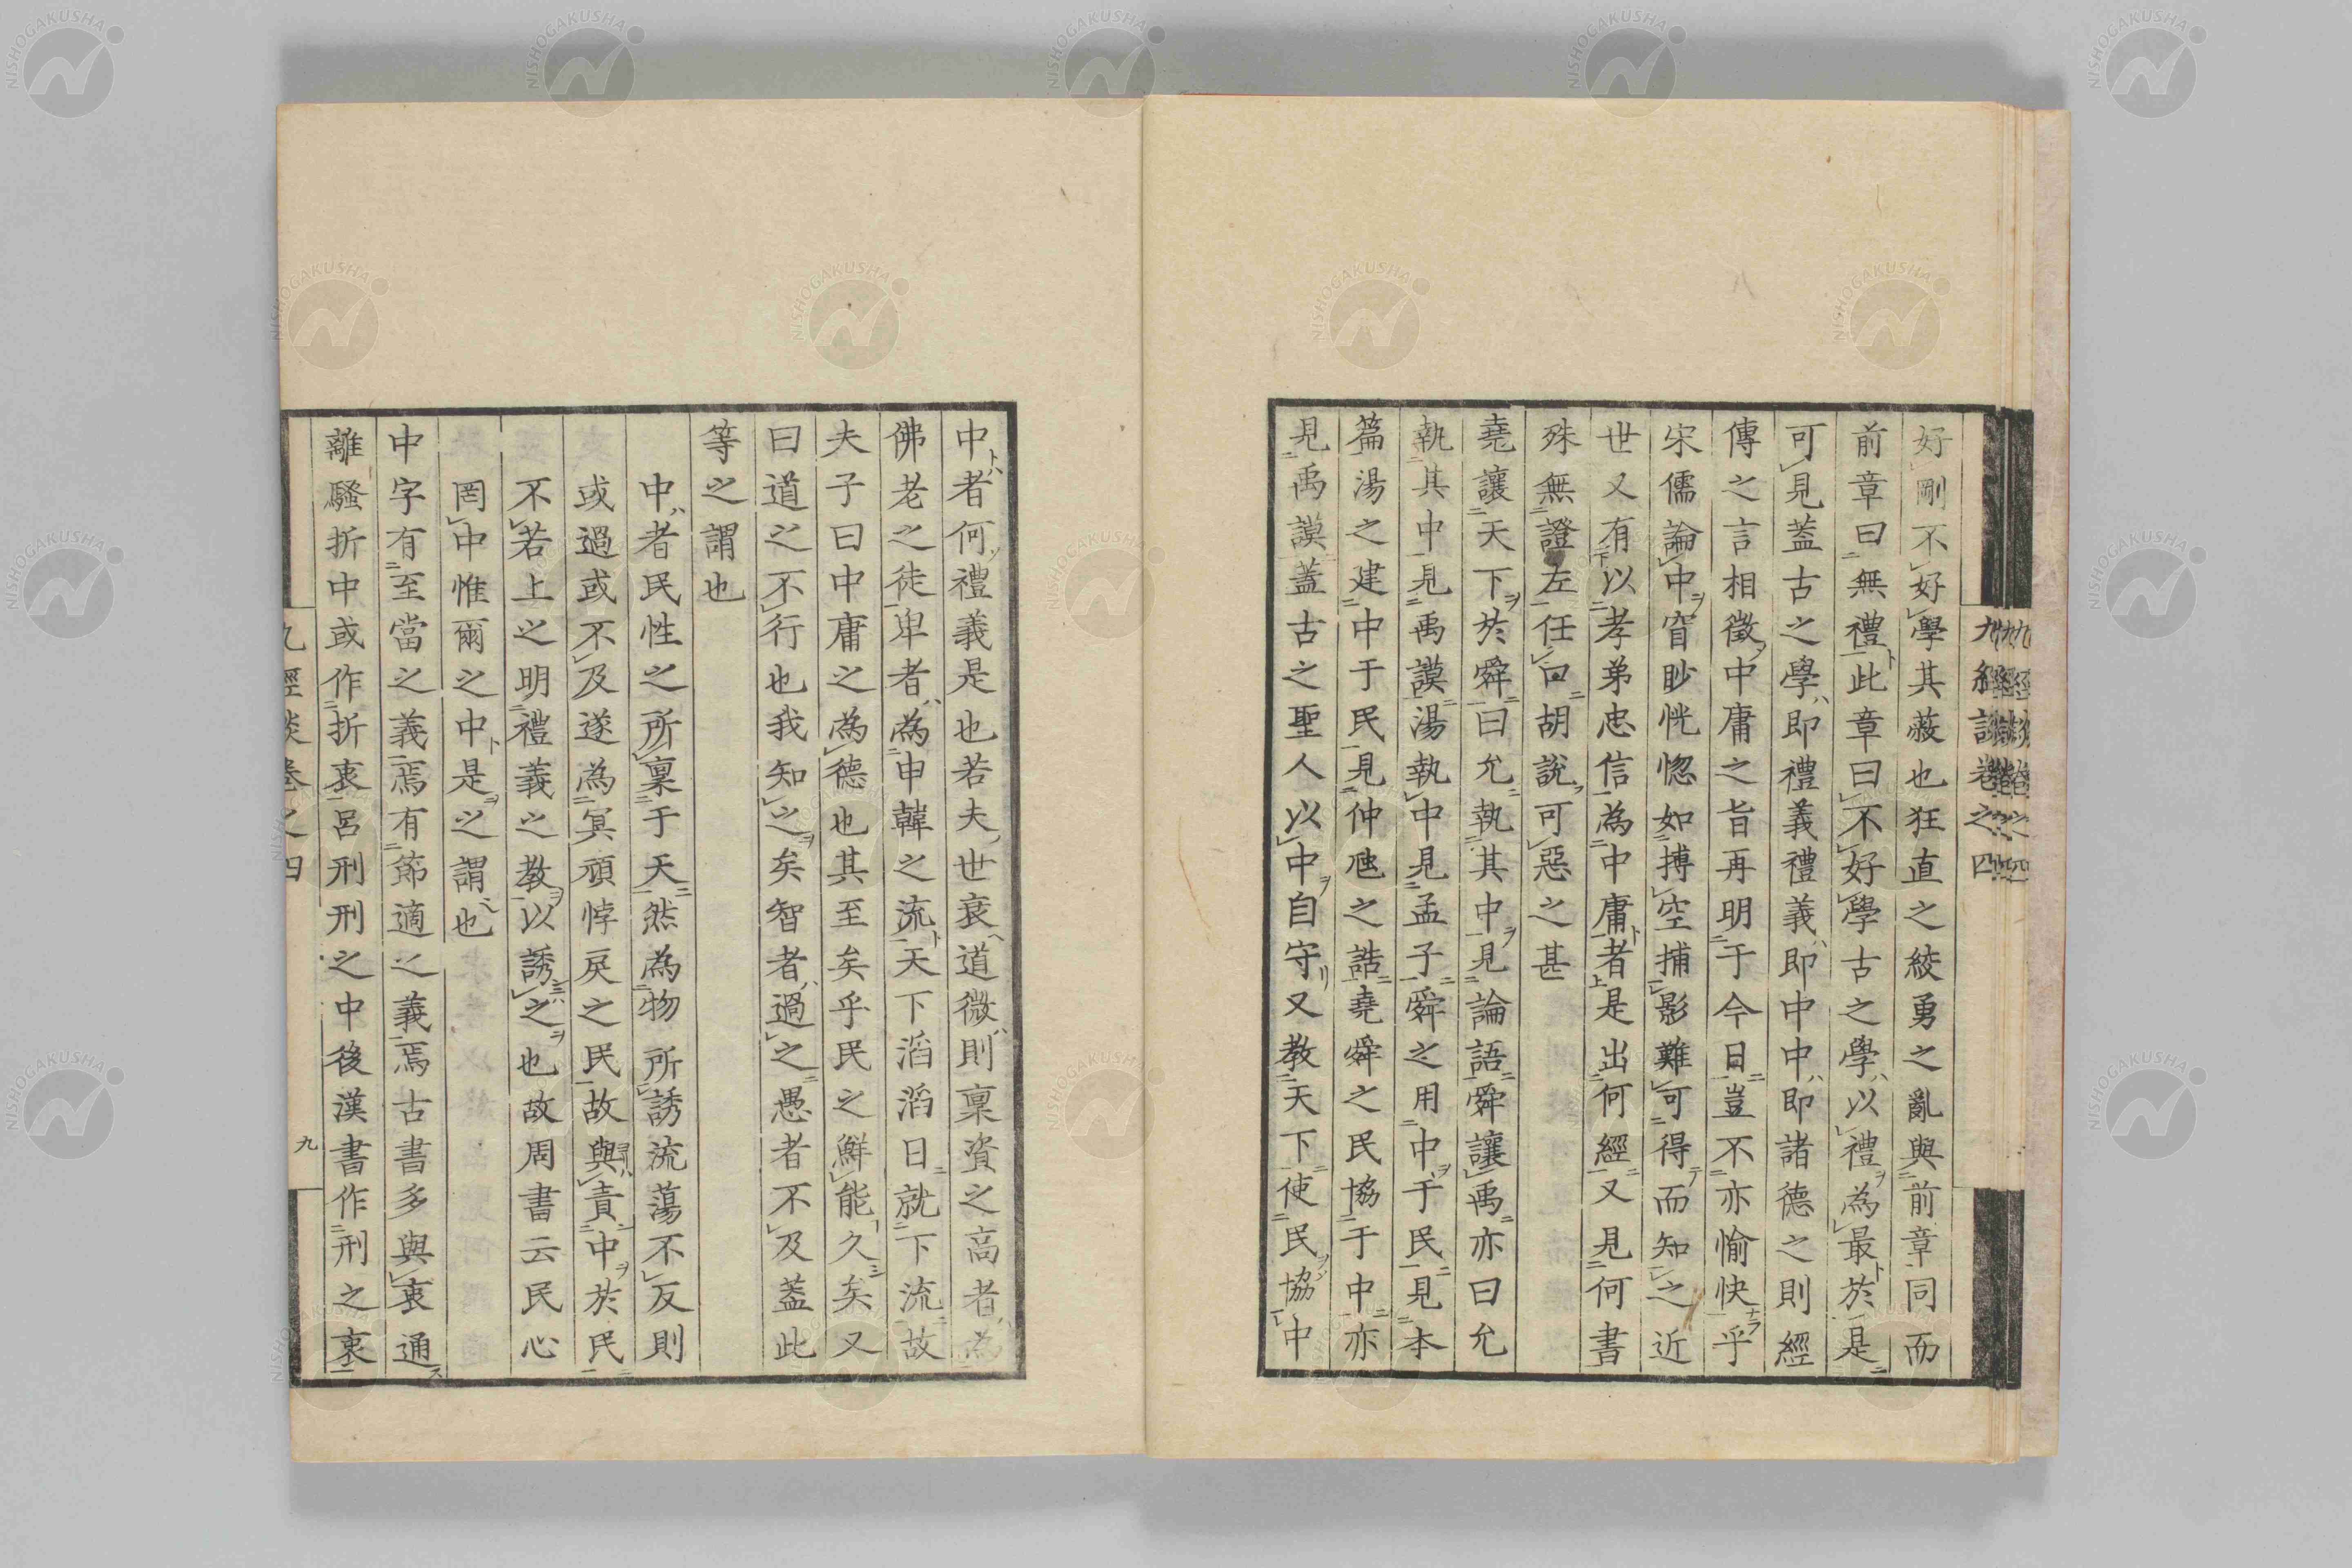 九經談卷之四
好剛不好學其蔽也狂直之絞勇之亂與前章同而
前章曰無禮此章曰不好學古之學以禮為最於是
可見蓋古之學即禮義禮義即中中即諸德之則經
傳之言相徵中庸之旨再明于今日豈不亦愉快乎
宋儒論中窅眇恍惚如搏空捕影難可得而知之近
世又有以孝弟忠信為中庸者是出何經又見何書
殊無證左任口胡說可惡之甚
堯讓天下於舜曰允執其中見論語舜讓禹亦曰允
執其中見禹謨湯執中見孟子舜之用中于民見本
篇湯之建中于民見仲虺之誥堯舜之民協于中亦
見禹謨蓋古之聖人以中自守又教天下使民協中
中者何禮義是也若夫世衰道微則稟資之高者為
佛老之徒卑者為申韓之流天下滔滔日就下流故
夫子曰中庸之為德也其至矣乎民之鮮能久矣又
曰道之不行也我知之矣智者過之愚者不及蓋此
等之謂也
中者民性之所稟于天然為物所誘流蕩不反則
或過或不及遂為冥頑悖戾之民故與責中於民
不若上之明禮義之教以誘之也故周書云民心
罔中惟爾之中是之謂也
中字有至當之義焉有節適之義焉古書多與衷通
離騷折中或作折衷呂刑刑之中後漢書作刑之衷
九經談卷之四
九